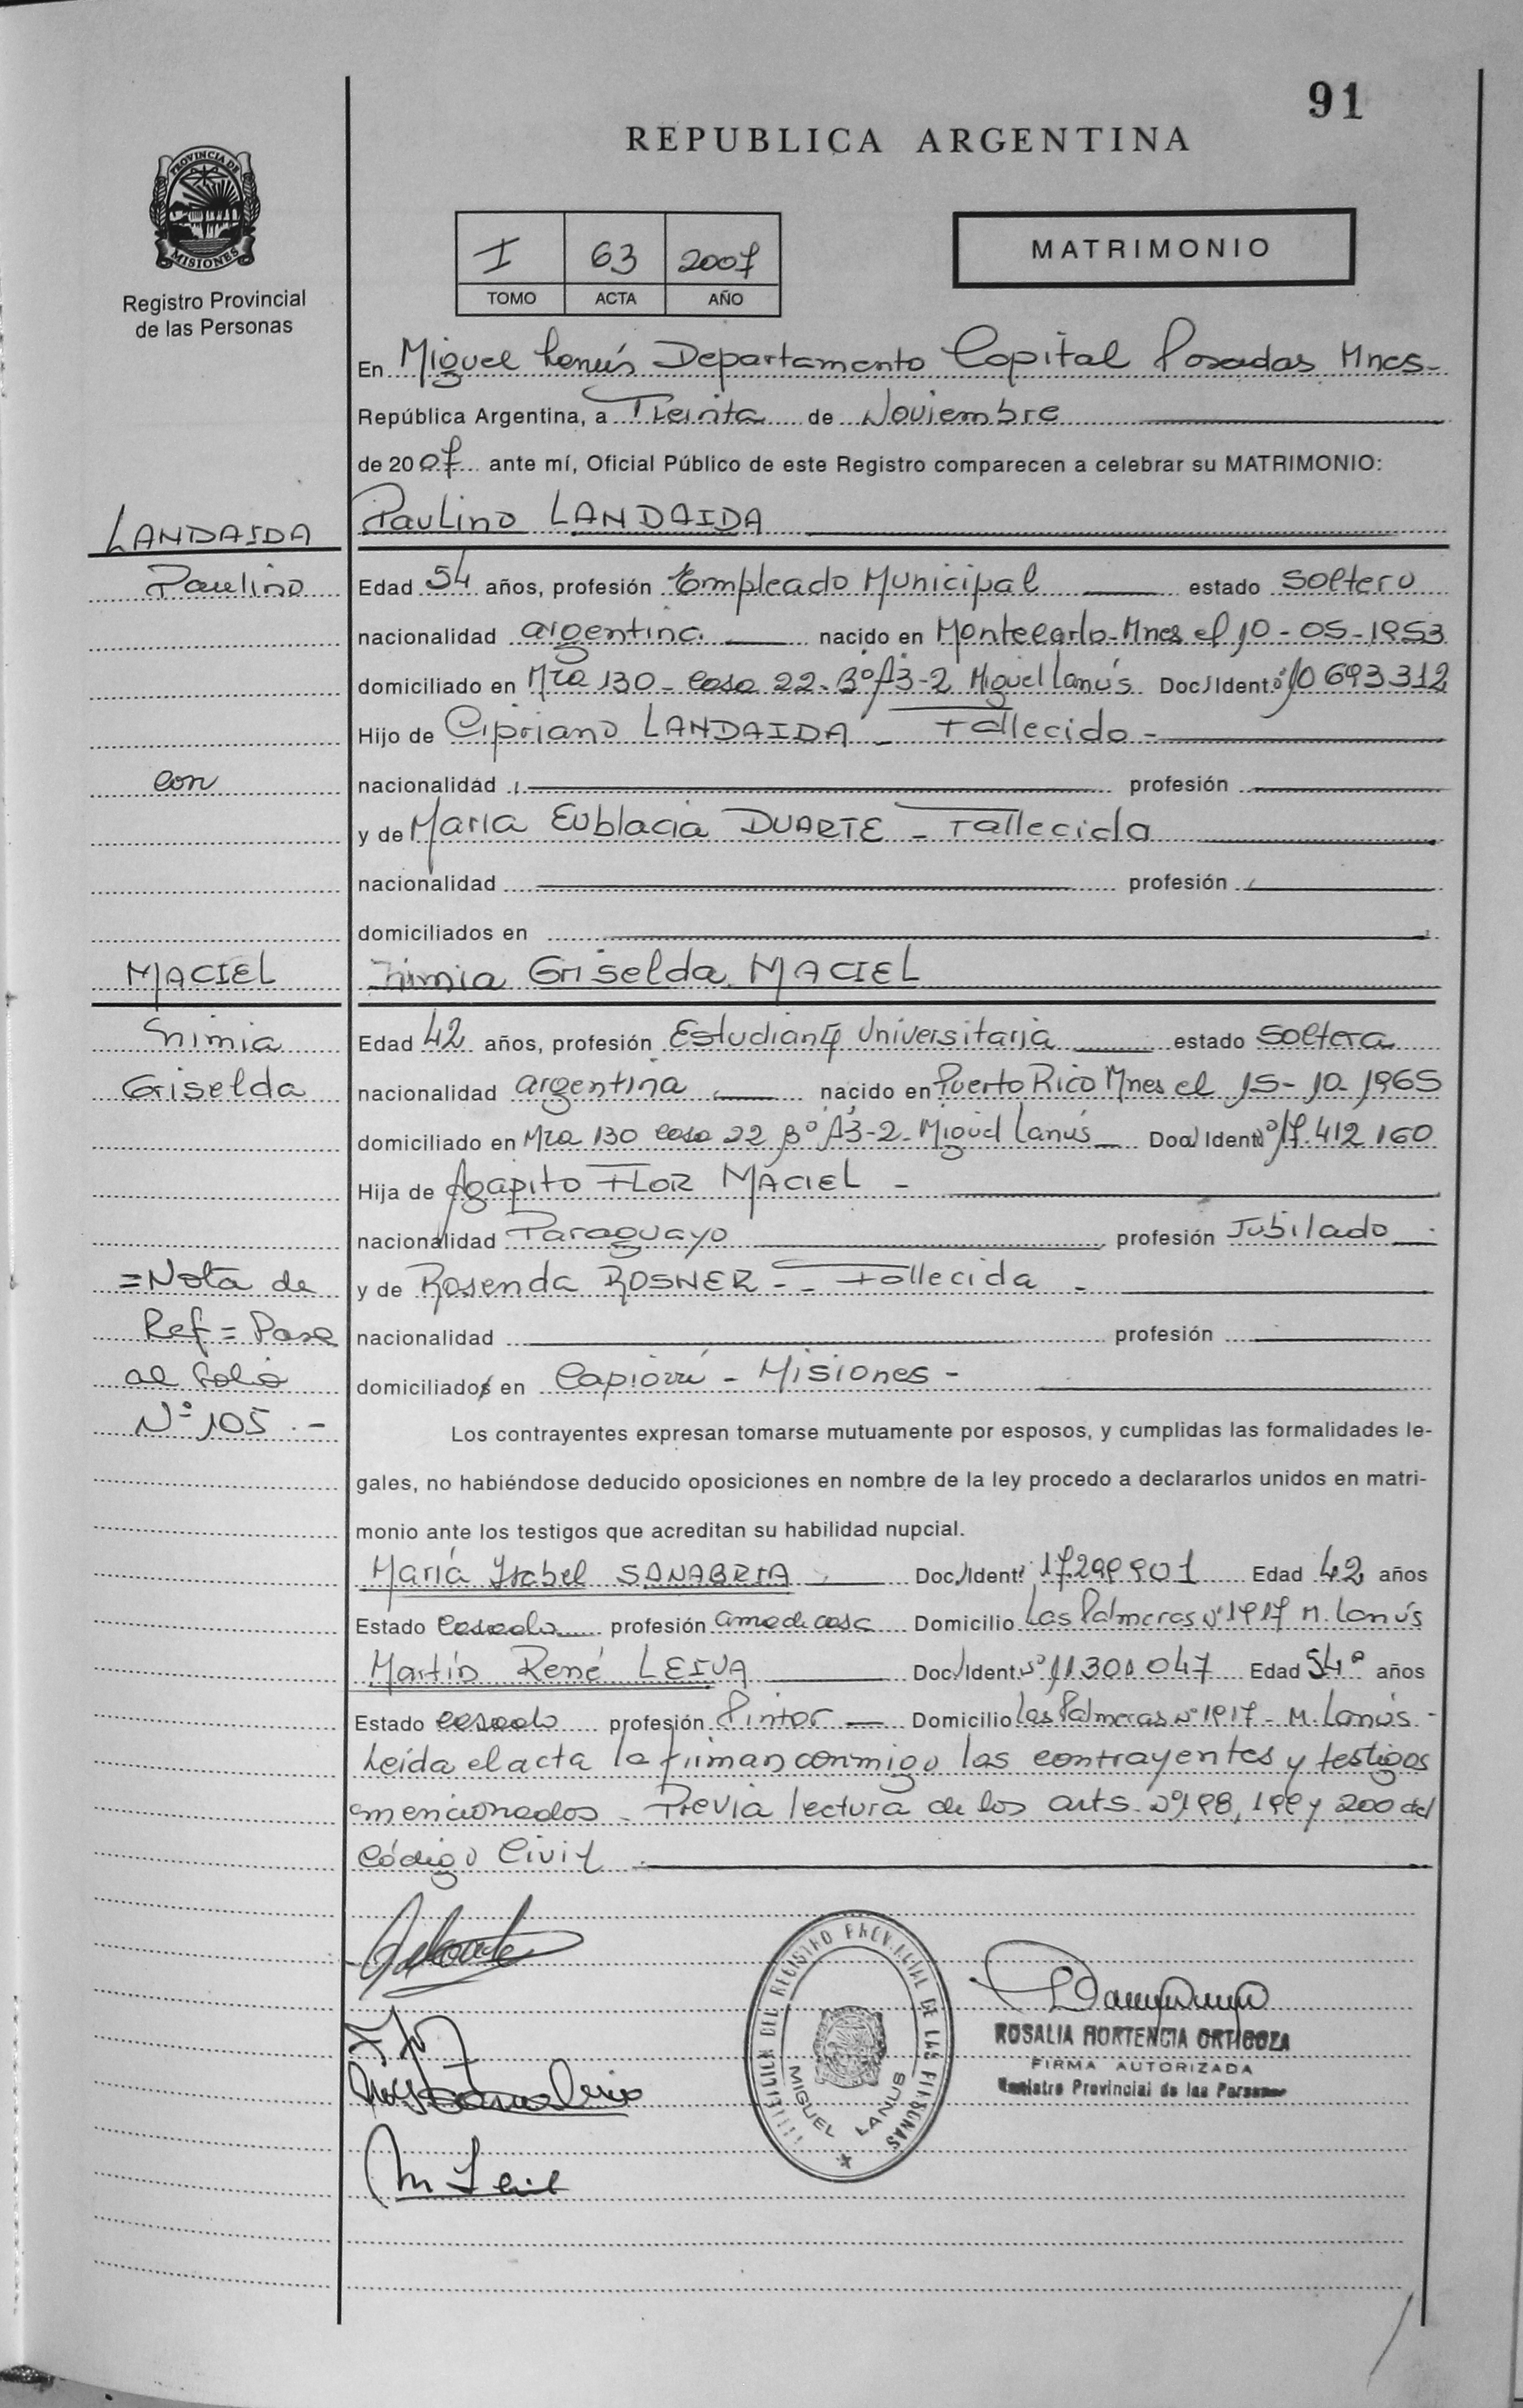 91
REPUBLICA ARGENTINA
PROVINCIA DE
MISIONES
Registro Provincial
de las Personas
I 63 2007
TOMO ACTA AÑO
MATRIMONIO
En Miguel Lanús Departamento Capital Posadas Mnes-
República Argentina, a Treinta de Noviembre
de 2007 ante mí, Oficial Público de este Registro comparecen a celebrar su MATRIMONIO:
LANDAIDA
Paulino LANDAIDA
Paulino
Edad 54 años, profesión Empleado Municipal estado soltero
nacionalidad argentina nacido en Montecarlo-Mnes el 10-05-1953
domiciliado en Mza 130- casa 22-Bº A3-2 Miguel Lanús Doc/Ident.º 10693312
Hijo de Cipriano LANDAIDA - Fallecido -
con
nacionalidad profesión
y de María Eublacia DUARTE - Fallecida
nacionalidad profesión
domiciliados en
MACIEL
Griselda MACIEL
Edad 42 años, profesión Estudiante Universitaria estado soltera
Griselda
nacionalidad argentina nacido en Puerto Rico Mnes el 15-10-1965
domiciliado en Mza 130 casa 22 Bº A3-2- Miguel Lanús Doc/Identº 17.412.160
Hija de Agapito FLOR MACIEL -
nacionalidad Paraguayo profesión Jubilado
=Nota de
y de Rosenda ROSNER - - Fallecida -
Ref= Pase
nacionalidad profesión
al folio
domiciliados en Capioví - Misiones -
Nº 105.-
Los contrayentes expresan tomarse mutuamente por esposos, y cumplidas las formalidades le-
gales, no habiéndose deducido oposiciones en nombre de la ley procedo a declararlos unidos en matri-
monio ante los testigos que acreditan su habilidad nupcial.
María Isabel SANABRIA Doc./Ident. Edad 42 años
Estado casada profesión ama de casa Domicilio Las Palmeras Nº 1917 M. Lanús
Martín René LEIVA Doc./Ident. Nº 11301047 Edad 54 años
Estado casado profesión Pintor Domicilio Las Palmeras Nº 1917- M. Lanús-
Leída el acta la firman conmigo los contrayentes y testigos
mencionados - Previa lectura de los arts. Nº 198, 199 y 200 del
Código Civil
DEL REGISTRO PROVINCIAL DE LAS PERSONAS
MIGUEL LANUS
ROSALIA HORTENCIA ORTIGOZA
FIRMA AUTORIZADA
Registro Provincial de las Personas